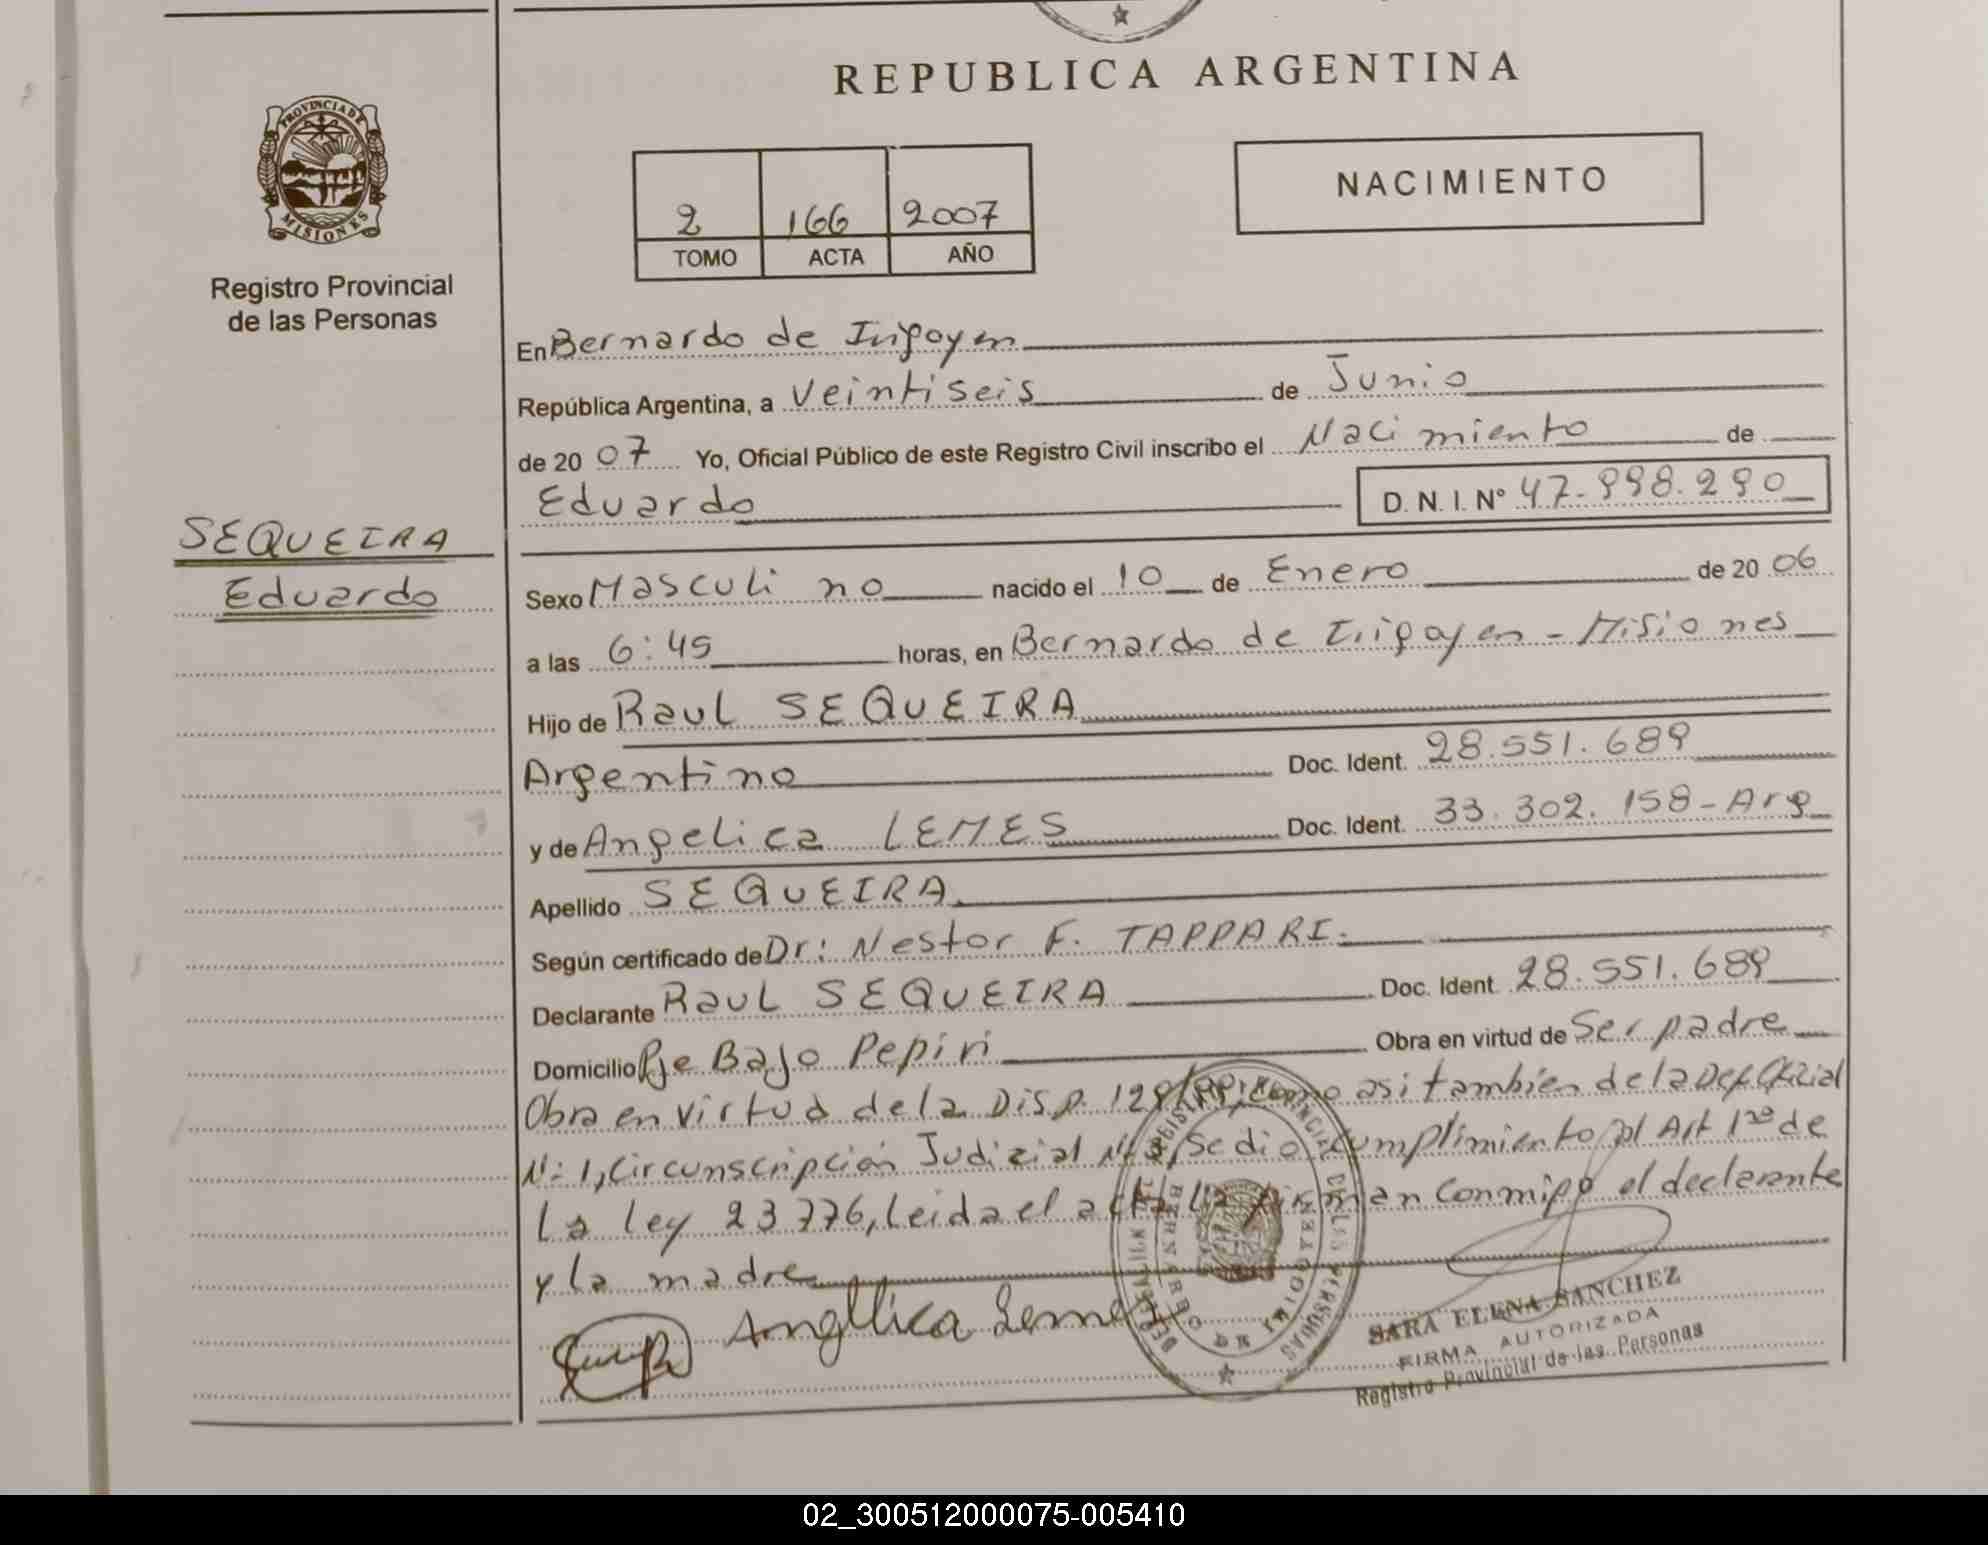 REPUBLICA ARGENTINA
PROVINCIA DE
MISIONES
Registro Provincial
de las Personas
NACIMIENTO
2 166 2007
TOMO ACTA AÑO
En Bernardo de Irigoyen
República Argentina, a Veintiseis de Junio
de 20 07 Yo, Oficial Público de este Registro Civil inscribo el Nacimiento de
Eduardo D. N. I. Nº 47.998.290
SEQUEIRA
Eduardo
Sexo Masculino nacido el 10 de Enero de 20 06
a las 6:45 horas, en Bernardo de Irigoyen - Misiones
Hijo de Raul SEQUEIRA
Argentino Doc. Ident. 28.551.689
y de Angelica LEMES Doc. Ident. 33.302.158-Arg
Apellido SEQUEIRA.
Según certificado de Dr: Nestor F. TAPPARI.
Declarante Raul SEQUEIRA Doc. Ident. 28.551.689
Domicilio Pje Bajo Pepiri Obra en virtud de Ser padre
Obra en virtud de la Disp. como asi tambien de la Def. Oficial
Nº 1, Circunscripción Judicial Nº 3, se dio cumplimiento al Art 1ro de
La ley 23776, leida el acta la firman conmigo el declarante
y la madre
Angelica Lemes
SARA ELENA SANCHEZ
FIRMA AUTORIZADA
Registro Provincial de las Personas
02_300512000075-005410